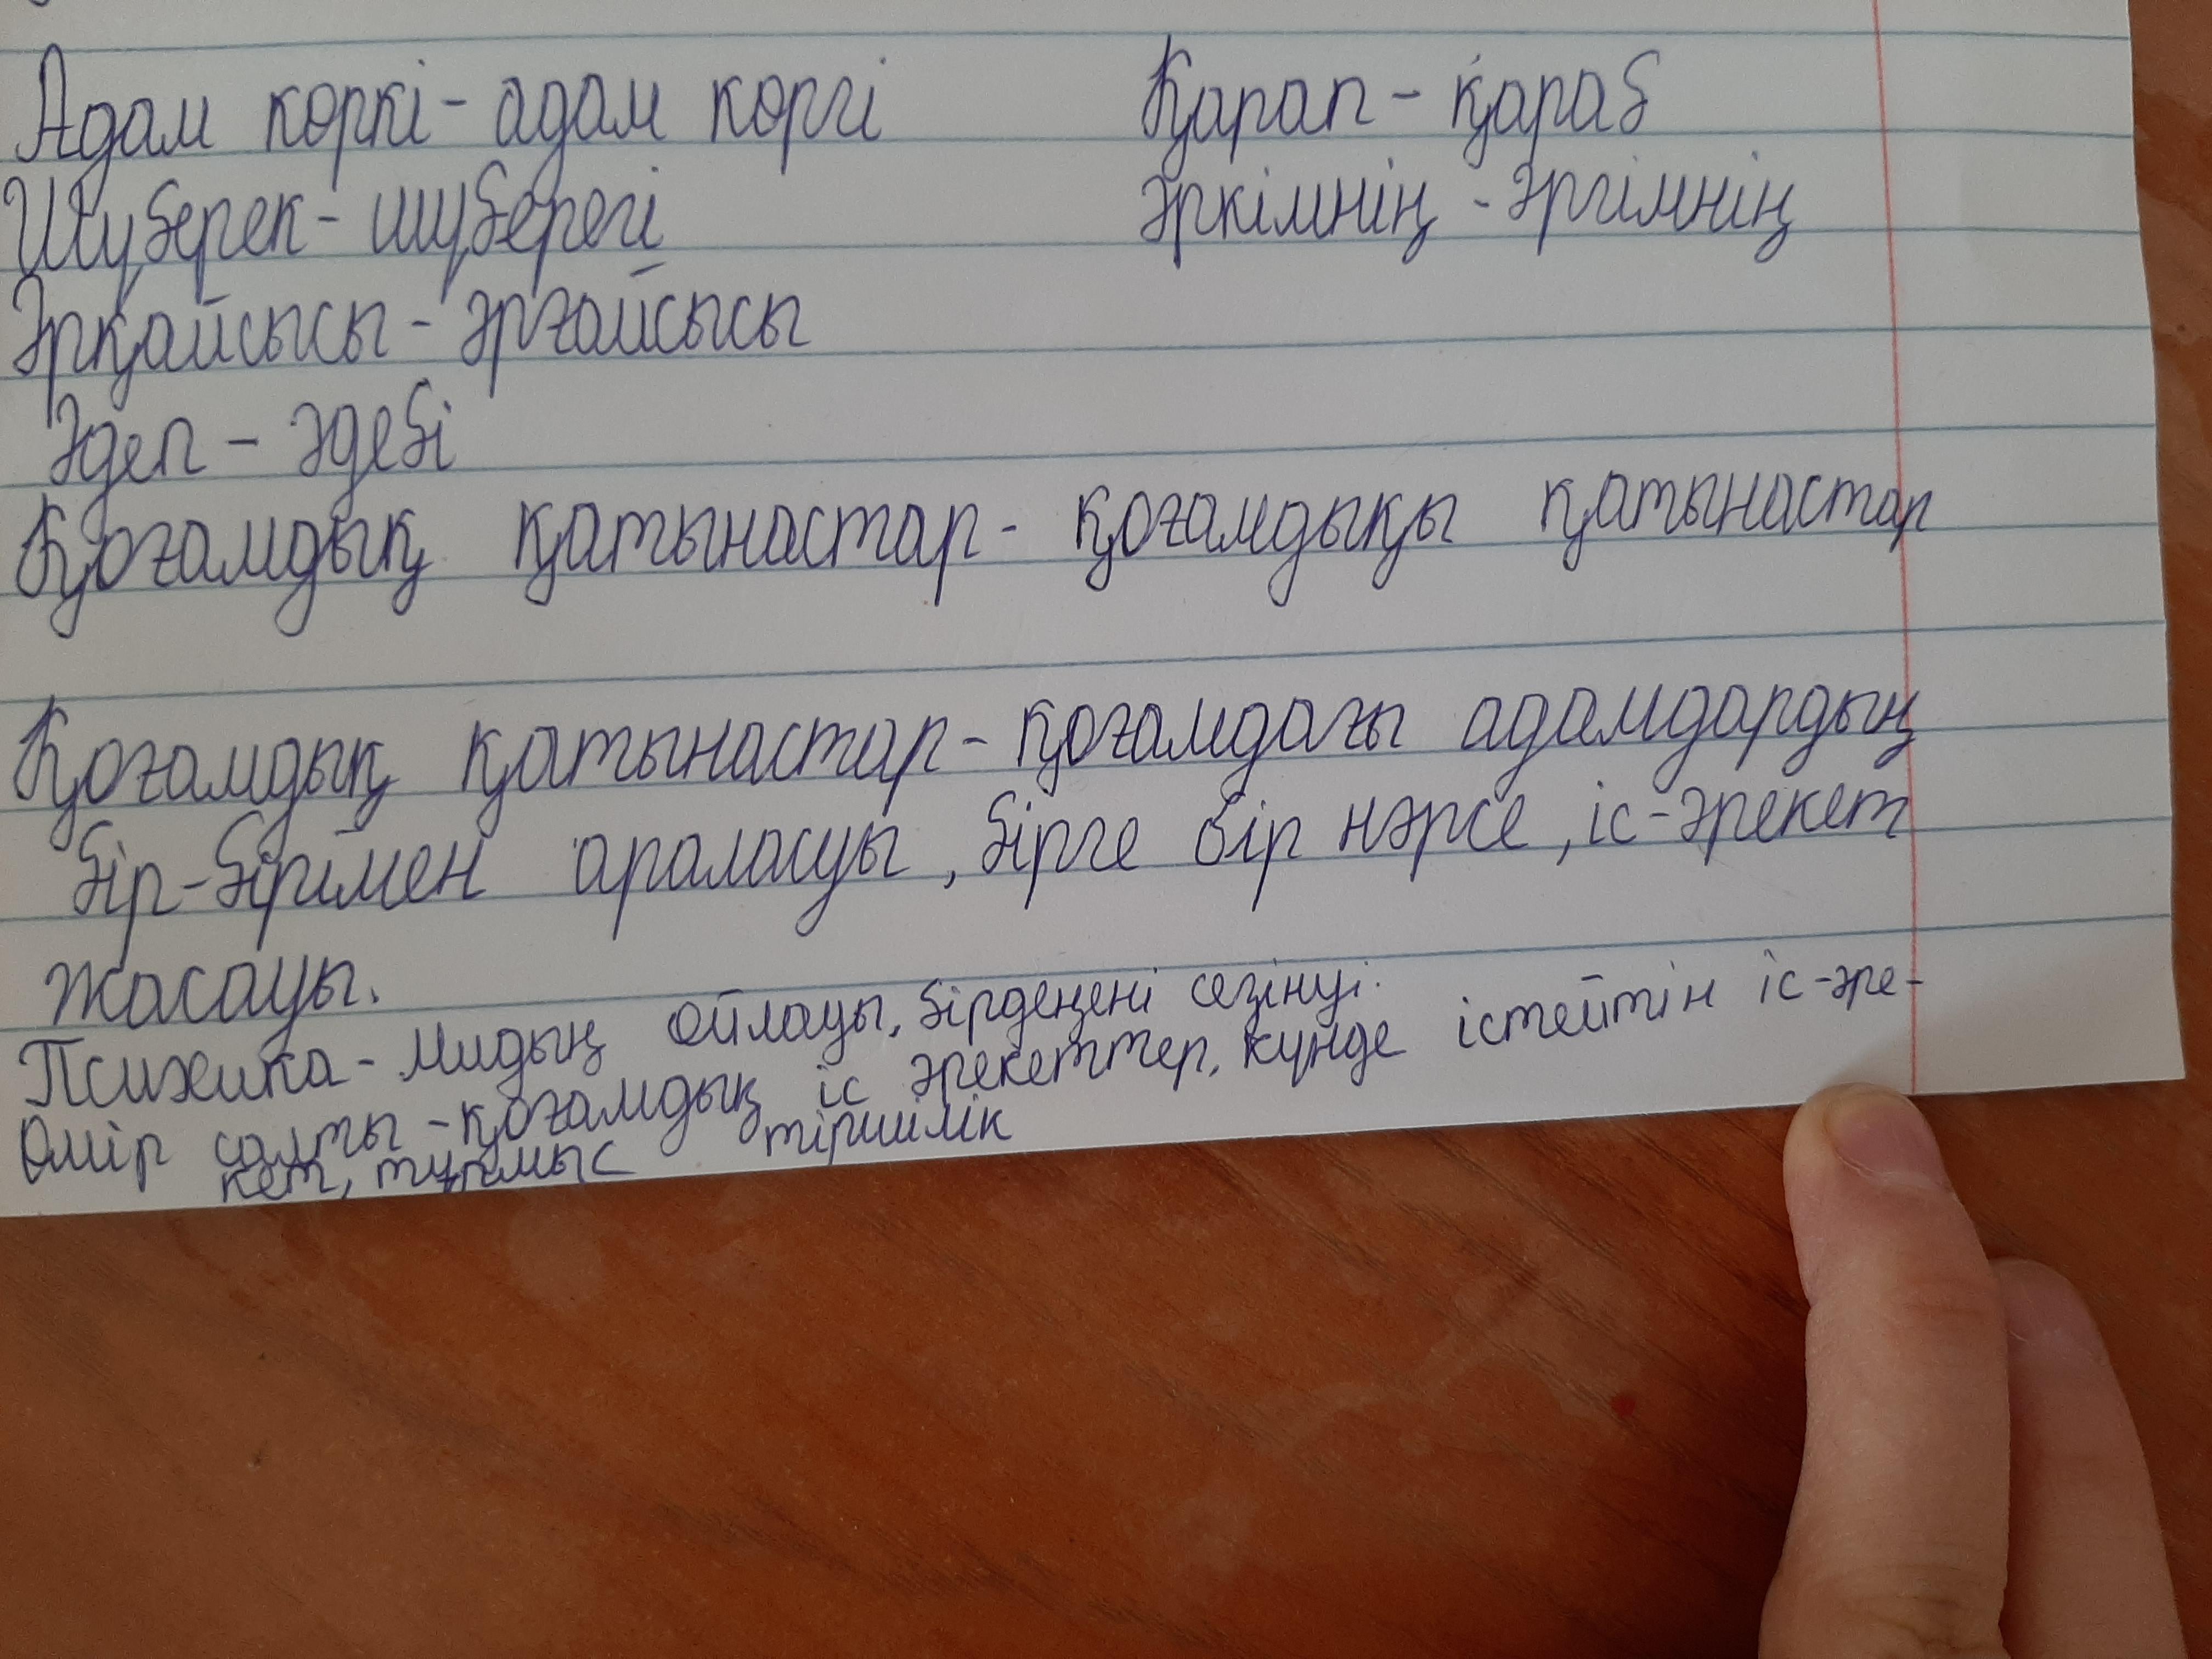 Адам көркі - адам көргі
Қарап - қараб
Шүберек - шүберегі
Әркімнің - әргімнің
Әрқайсысы - әрғайсысы
Әдеп - әдебі
Қоғамдық қатынастар - қоғамдықы қатынастар
Қоғамдық қатынастар - қоғамдағы адамдардың
бір-бірімен араласуы, бірге бір нәрсе, іс-әрекет
жасауы.
Психика - Мидың ойлауы, бірдеңені сезінуі.
Өмір салты - қоғамдың іс әрекеттер, күнде істейтін іс-әре-
кет, тұрмыс тіршілік